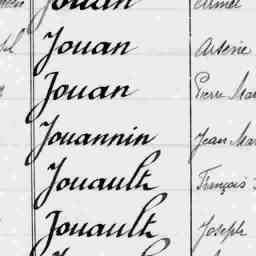 Jouan Armel
Jouan Arsène
Jouan Pierre Mar
Jouannin Jean Mar
Jouault François
Jouault Joseph